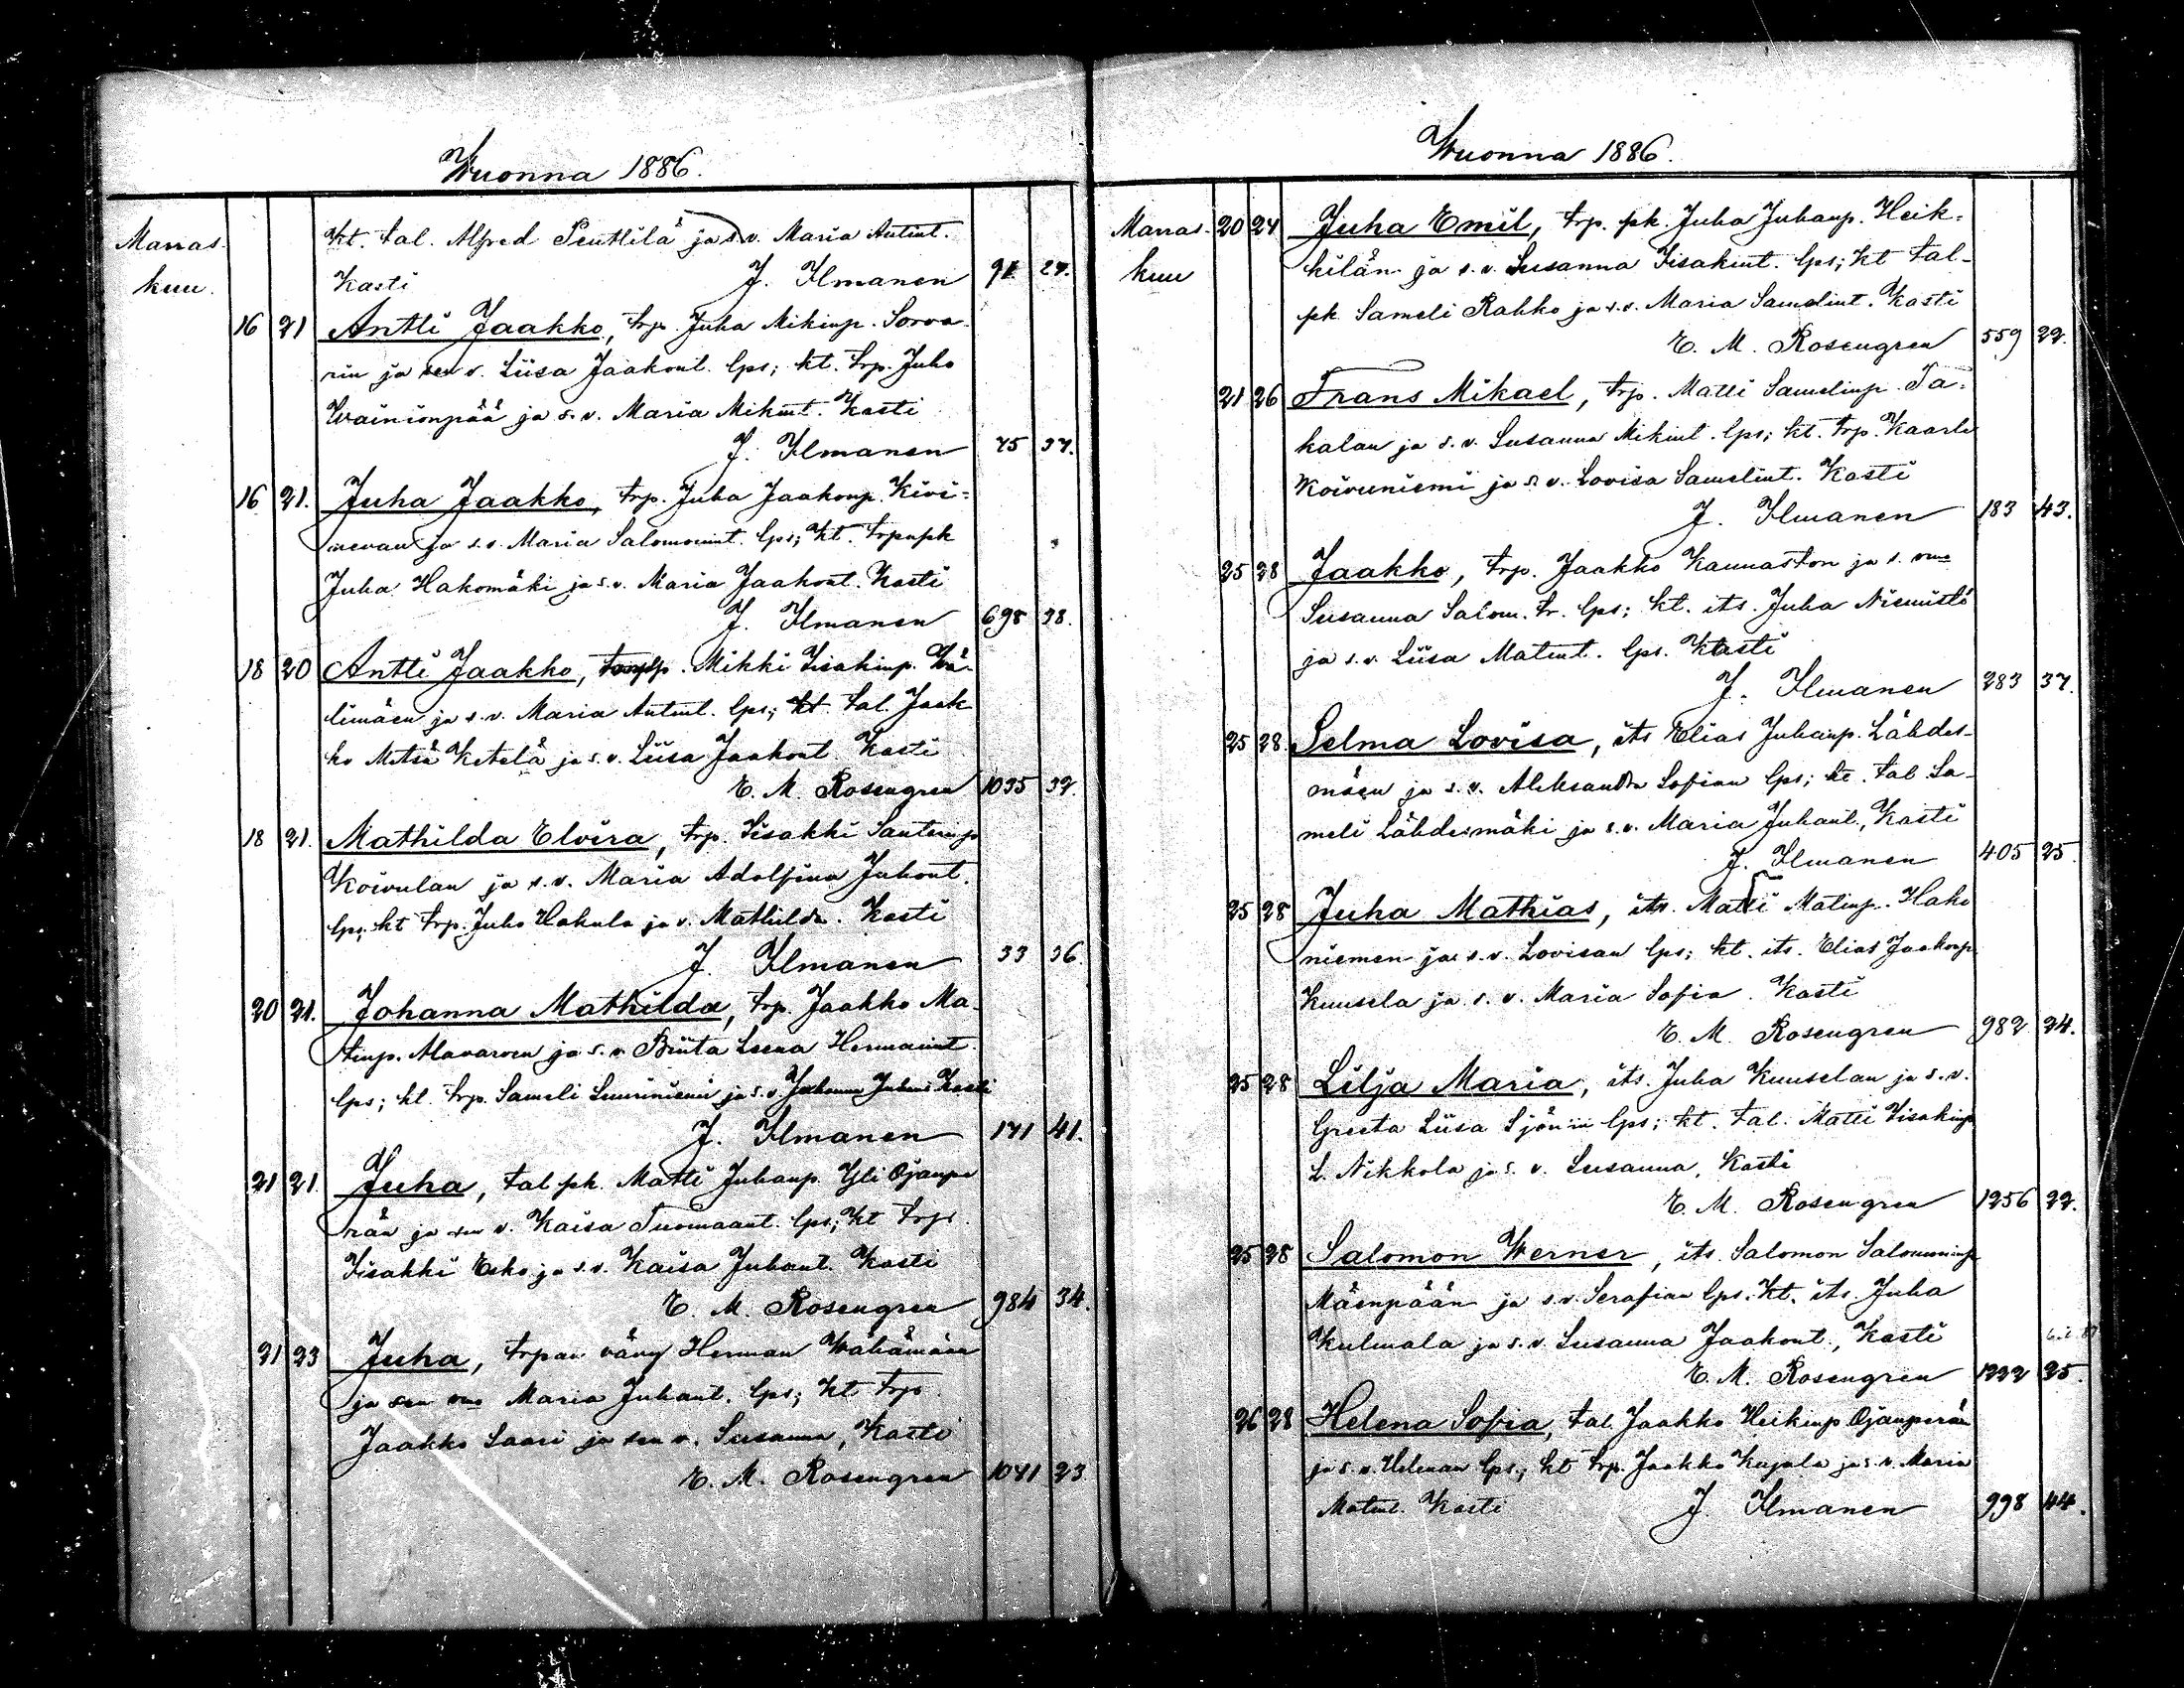 Wuonna 1886.
Marras-
kuu.
kt. tal. Alfred Penttilä ja s.v. Maria Antint.
Kasti J. Ilmanen 91 27.
16 21 Antti Jaakko, trp. Juha Mikinp. Sorva-
rin ja sen v. Liisa Jaakont. lps; kt. trp. Juho
Wainionpää ja s.v. Maria Mikint. Kasti
J. Ilmanen 75 37.
16 21. Juha Jaakko, trp. Juha Jaakonp. Kivi-
ja s.v. Maria Salomonint. lps; kt. trpnpk
Juha Hakomäki ja s.v. Maria Jaakont. Kasti
J. Ilmanen 698 38.
18 20 Antti Jaakko, Mikki Iisakinp. Wä-
limäen ja s.v. Maria Antint. lps; kt. tal. Jaak-
ko Metsä Ketelä ja s.v. Liisa Jaakont. Kasti
E. M. Rosengren 1035 32.
18 21. Mathilda Elvira, trp. Iisakki Santerinp
Koivulan ja s.v. Maria Adolfina Juhont.
lps, kt trp. Juho Hakula ja v. Mathilda. Kasti
J. Ilmanen 33 36.
20 21. Johanna Mathilda, trp. Jaakko Ma-
tinp. Alavarven ja s.v. Briita Leena Hermanint.
lps; kt. trp. Sameli Suuriniemi ja s.v. Johanna Juhant Kasti
J. Ilmanen 171 41.
21 21. Juha, tal pk. Matti Juhanp. Yli Ojanpe
rän ja sen v. Kaisa Tuomaant. lps; kt trp.
Iisakki Esko ja s.v. Kaisa Juhant. Kasti
E. M. Rosengren 984 34.
21 23 Juha, trpan vävy Herman Wähämäen
ja sen vmo Maria Juhant. lps; kt trp.
Jaakko Saari ja sen v. Susanna, Kasti
E. M. Rosengren 1041 23
Wuonna 1886.
Marras-
kuu
20 24 Juha Emil, trp. pk. Juha Juhanp. Heik-
kilän ja s.v. Susanna Iisakint. lps; kt tal-
pk Sameli Rahko ja s.v. Maria Samelint. Kasti
E. M. Rosengren 559 22.
21 26 Frans Mikael, trp. Matti Samelinp. Ta-
kalan ja s.v. Susanna Mikint. lps; kt. trp. Kaarle
Koivuniemi ja s.v. Lovisa Samelint. Kasti
J. Ilmanen 183 43.
25 28 Jaakko, trp. Jaakko Kaunaston ja s. vmo
Susanna Salom. tr. lps; kt. its. Juha Niemistö
ja s.v. Liisa Matint. lps. Kasti
J. Ilmanen 283 37.
25 28. Selma Lovisa, its Elias Juhanp. Lähdes-
mäen ja s.v. Aleksandra Sofian lps; kt. tal Sa-
meli Lähdesmäki ja s.v. Maria Juhant., Kasti
J. Ilmanen 405 25.
25 28 Juha Mathias, its. Matti Matinp. Hako
niemen ja s.v. Lovisan lps; kt. its. Elias Jaakonp
Kuusela ja s.v. Maria Sofia. Kasti
E. M. Rosengren 982 24.
25 28 Lilja Maria, its. Juha Kuuselan ja s.v.
Greeta Liisa lps; kt. tal. Matti Iisakinp
L. Nikkola ja s.v. Susanna, Kasti
E. M. Rosengren 1256 22.
25 28 Salomon Werner, its. Salomon Salomoninp
Mäenpään ja s.v. Serafian lps. kt. its. Juha
Kulmala ja s.v. Susanna Jaakont., Kasti
E. M. Rosengren 1222 25.
26 28 Helena Sofia, tal Jaakko Heikinp Ojanperän
ja s.v. Helenan lps; kt trp. Jaakko Kujala ja s.v. Maria
Matint. Kasti J. Ilmanen 998 44.